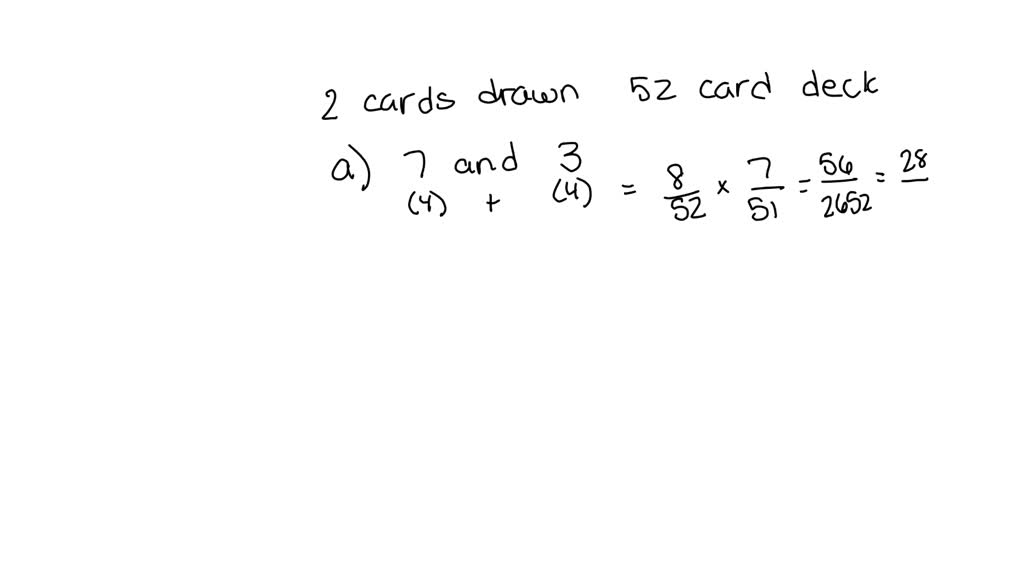 2 cards drawn 52 card deck
a) 7 and 3
(4) + (4) = 8/52 × 7/51 = 56/2652 = 28/